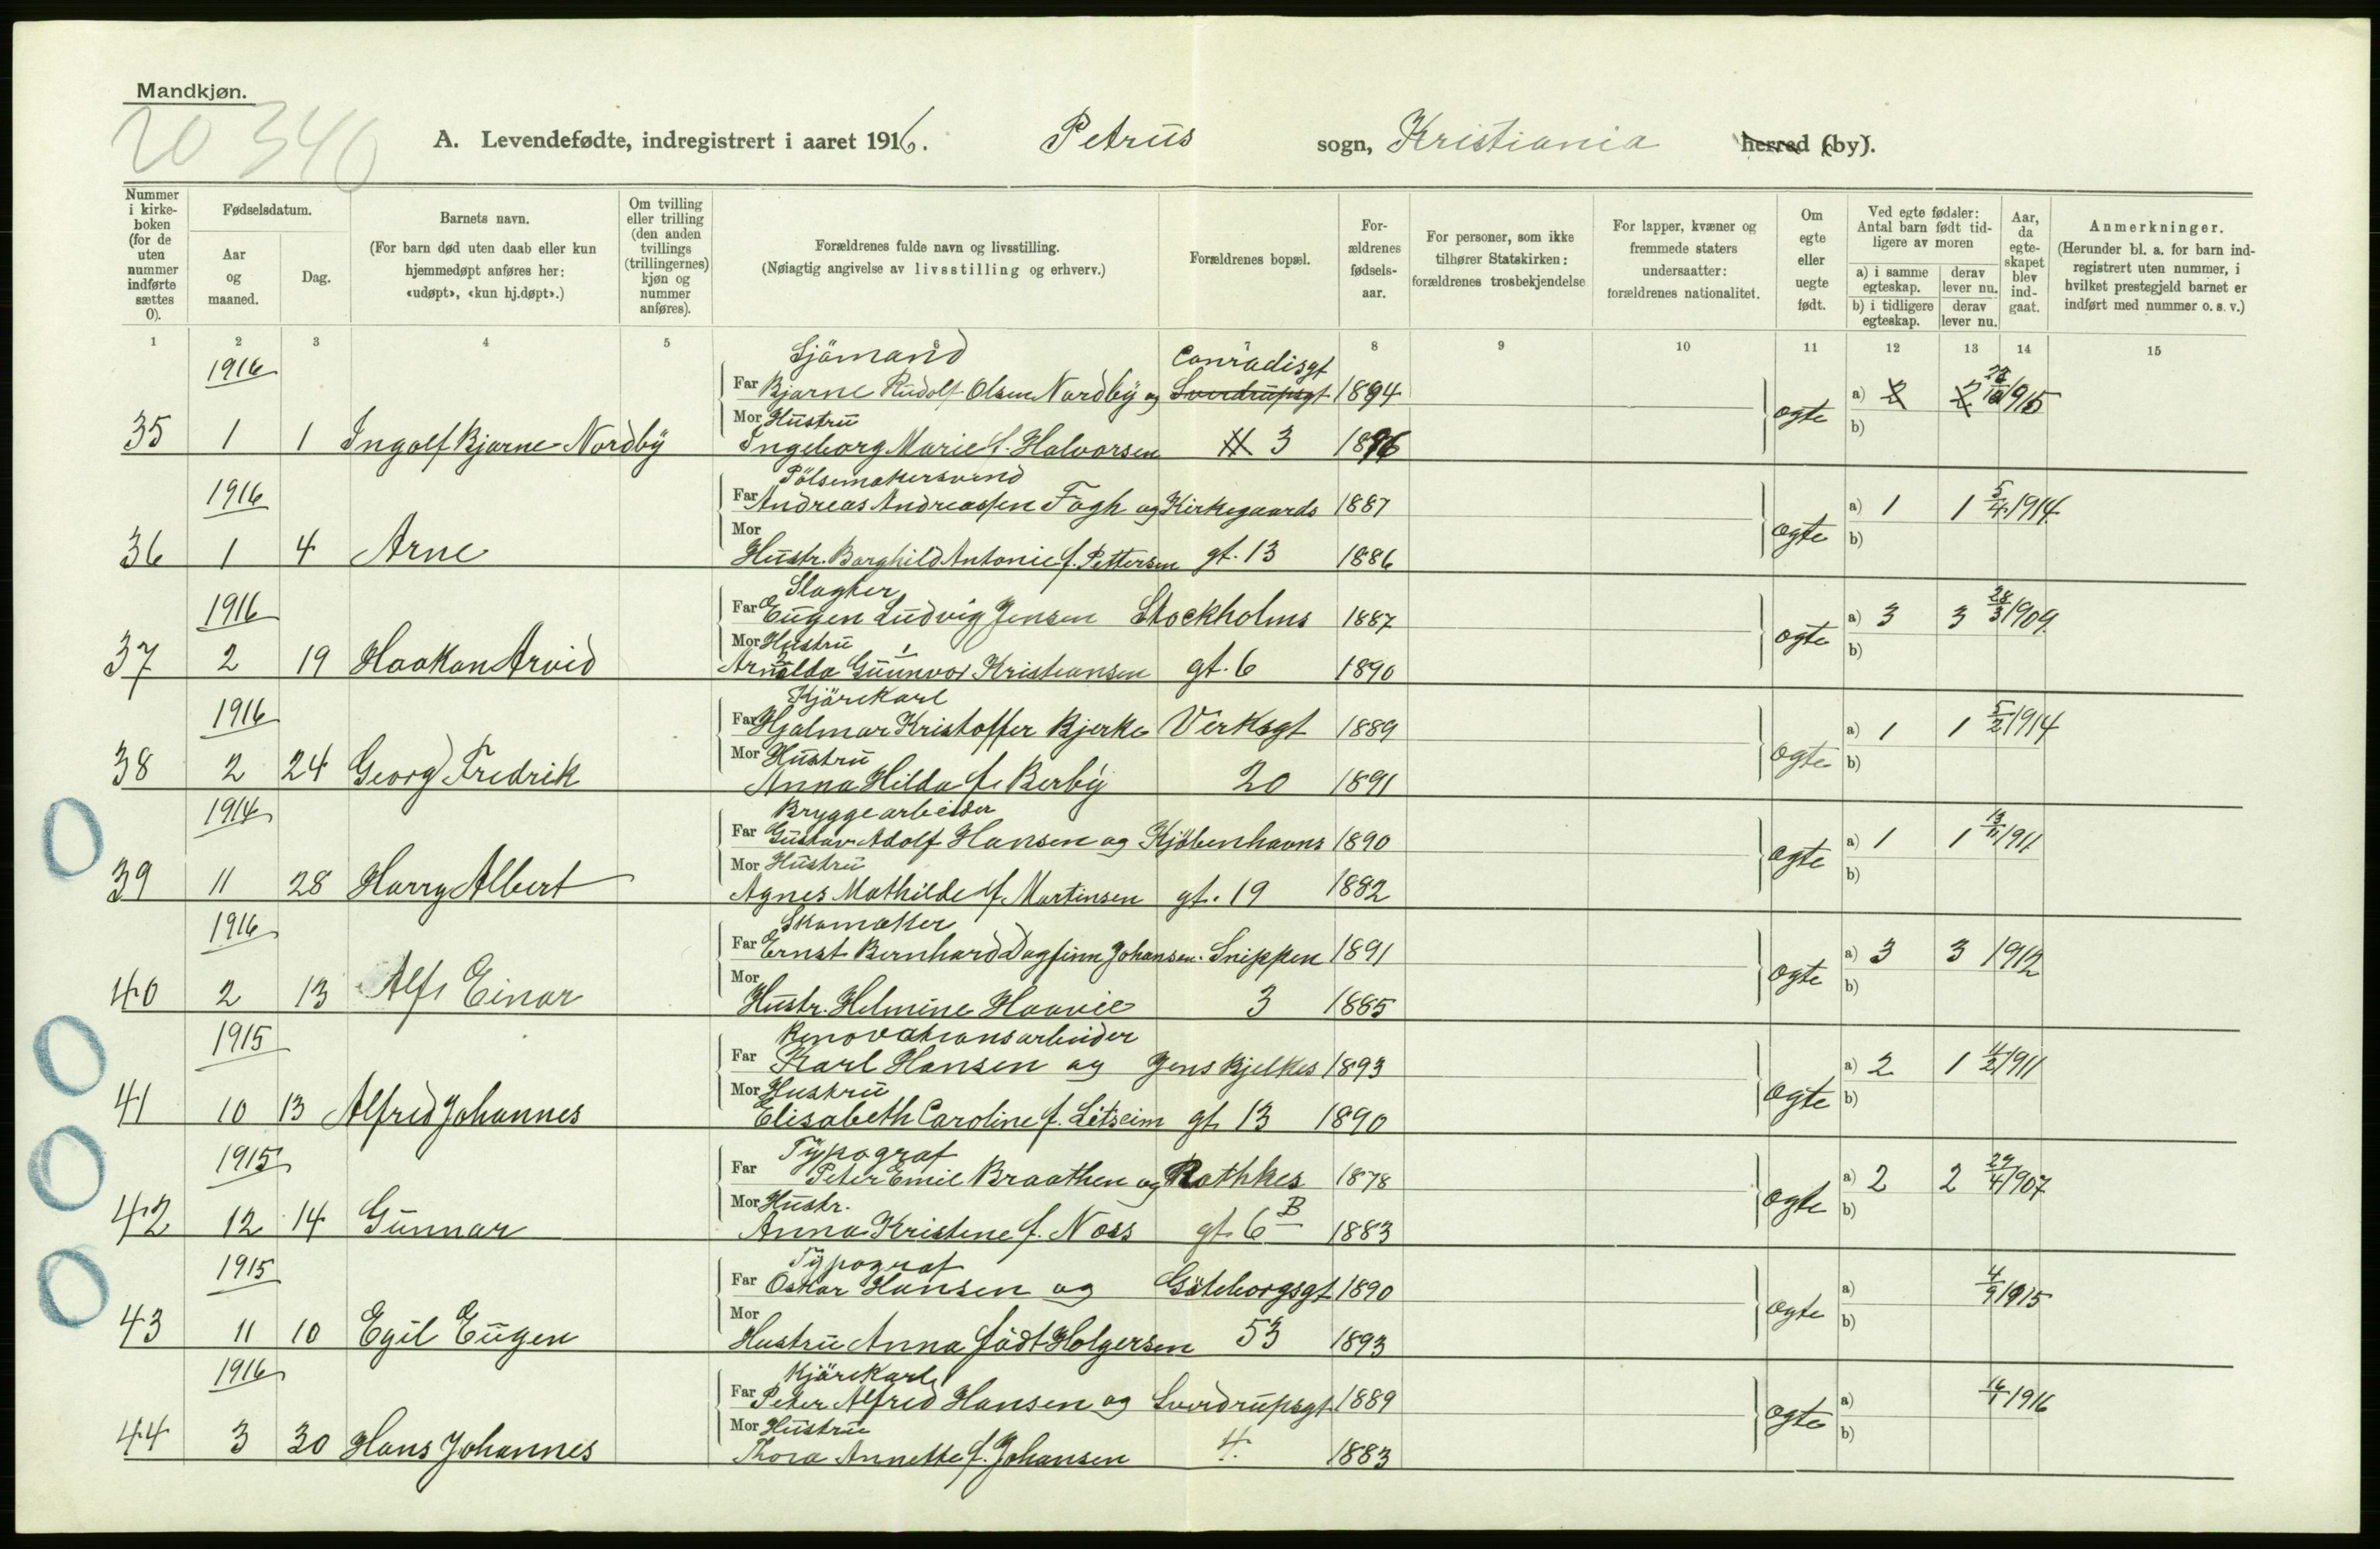 Mandkjøn.
20 340
A. Levendefødte, indregistrert i aaret 1916. Petrus sogn, Kristiania herred (by).
Nummer i kirke-boken (for de uten nummer indførte sættes 0).
Fødselsdatum.
Aar og maaned.
Dag.
Barnets navn.
(For barn død uten daab eller kun hjemmedøpt anføres her: «udøpt», «kun hj.døpt».)
Om tvilling eller trilling (den anden tvillings (trillingernes) kjøn og nummer anføres).
Forældrenes fulde navn og livsstilling.
(Nøiagtig angivelse av livsstilling og erhverv.)
Forældrenes bopæl.
For-ældrenes fødsels-aar.
For personer, som ikke tilhører Statskirken: forældrenes trosbekjendelse
For lapper, kvæner og fremmede staters undersaatter: forældrenes nationalitet.
Om egte eller uegte født.
Ved egte fødsler: Antal barn født tid-ligere av moren
a) i samme egteskap. derav lever nu.
b) i tidligere egteskap. derav lever nu.
Aar, da egte-skapet blev ind-gaat.
Anmerkninger.
(Herunder bl. a. for barn ind-registrert uten nummer, i hvilket prestegjeld barnet er indført med nummer o. s. v.)
1 2 3 4 5 6 7 8 9 10 11 12 13 14 15
1916 Sjömand Conradisgt
Far Bjarne Rudolf Olsen Nordby og Sverdrupsgt 1894 a) 2 2 28/10 1915
Mor Hustru egte b)
35 1 1 Ingolf Bjarne Nordby Ingeborg Marie f. Halvorsen 11 3 1896
1916 Pölsemakersvend
Far Andreas Andreassen Fagh og Kirkegaards 1887 a) 1 1 5/4 1914
Mor egte b)
36 1 4 Arne Hustr. Borghild Antonie f. Pettersen gt. 13 1886
1916 Slagter
Far Eugen Ludvig Jensen Stockholms 1887 a) 3 3 28/3 1909
Mor Hustru egte b)
37 2 19 Haakon Arvid Arnalda Gunnvor Kristiansen gt. 6 1890
1916 Kjörekarl
Far Hjalmar Kristoffer Bjerke Verksgt 1889 a) 1 1 5/2 1914
Mor Hustru egte b)
38 2 24 Georg Fredrik Anna Hilda f. Berby 20 1891
1914 Bryggearbeider
Far Gustav Adolf Hansen og Kjöbenhavns 1890 a) 1 1 13/11 1911
Mor Hustru egte b)
39 11 28 Harry Albert Agnes Mathilde f. Martinsen gt. 19 1892
1916 Skomaker
Far Ernst Bernhard Dagfinn Johansen. Snippen 1891 a) 3 3 1912
Mor egte b)
40 2 13 Alf Einar Hustr. Helmine Haavie 3 1885
1915 Renovationsarbeider
Far Karl Hansen og Jens Bjelkes 1893 a) 2 1 4/2 1911
Mor Hustru egte b)
41 10 13 Alfred Johannes Elisabeth Caroline f. gt. 13 1890
1915 Typograf
Far Peter Emil Braathen og Rathkes 1878 a) 2 2 29/4 1907
Mor Hustr. egte b)
42 12 14 Gunnar Anna Kristine f. Noss gt. 6 B 1883
1915 Typograf
Far Oskar Hansen og Göteborgsgt 1890 a) 4/9 1915
Mor egte b)
43 11 10 Egil Eugen Hustru Anna födt Holgersen 53 1893
1916 Kjörekarl
Far Peter Alfred Hansen og Sverdrupsgt 1889 a) 1916
Mor Hustru egte b)
44 3 30 Hans Johannes Thora Annette f. Johansen 4. 1883